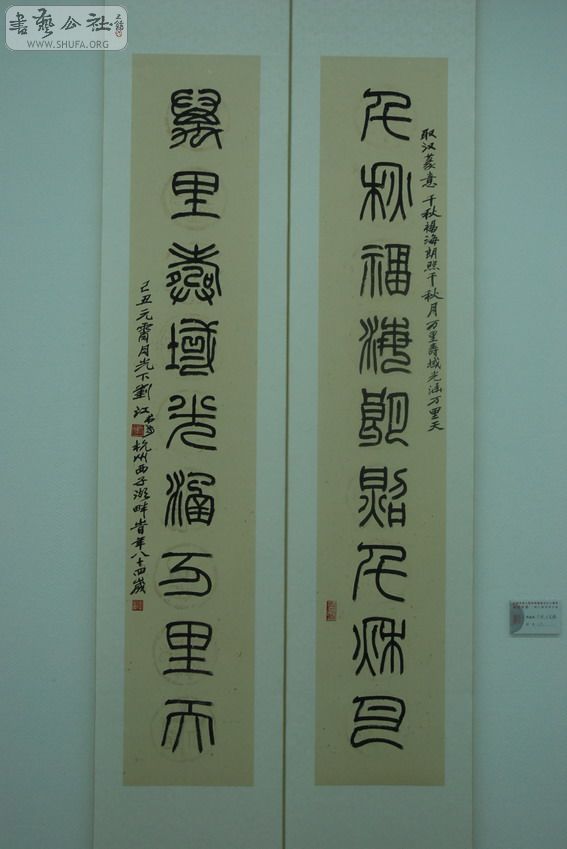 書藝公社
WWW.SHUFA.ORG
取汉篆意 千秋福海朗照千秋月万里壽域光涵万里天
千秋福海朗照千秋月
萬里壽域光涵万里天
己丑元霄月光下劉江
杭州西子湖畔旹年八十四歲